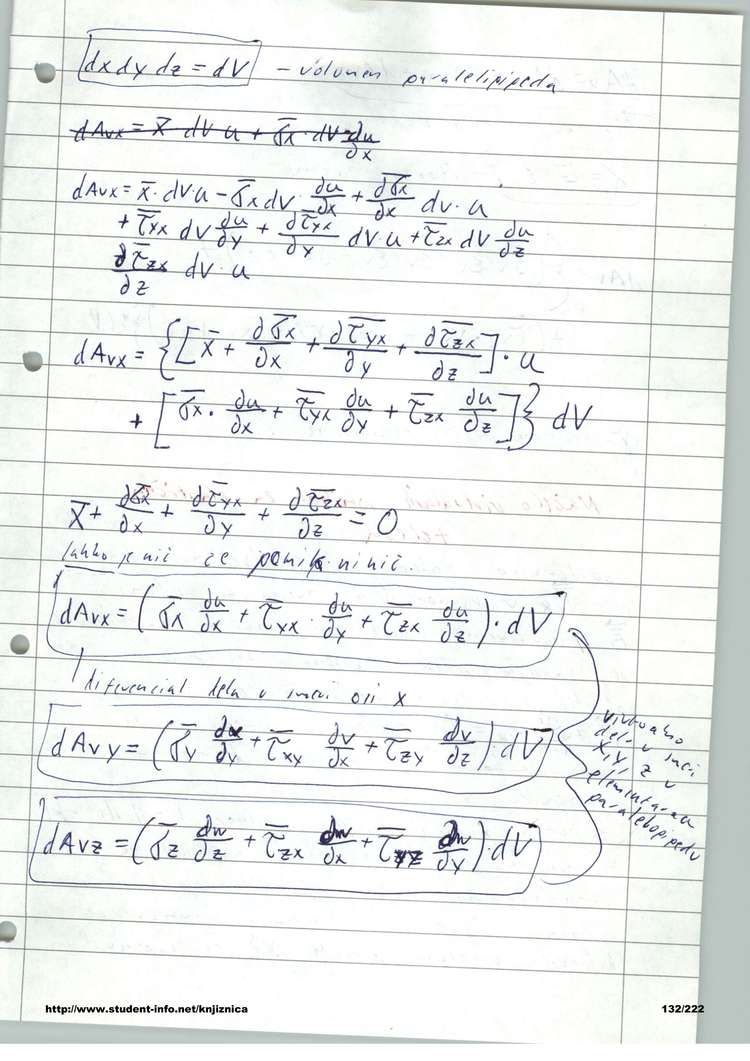 dx dy dz = dV - volumen paralelipipeda
dAvx = X̄ dV u + σ̄x dV ∂u/∂x
dAvx = X̄ · dV · u - σ̄x dV · ∂u/∂x + ∂σ̄x/∂x dV · u
+ τ̄yx dV ∂u/∂y + ∂τ̄yx/∂y dV · u + τ̄zx dV ∂u/∂z
∂τ̄zx/∂z dV · u
dAvx = {[X̄ + ∂σ̄x/∂x + ∂τ̄yx/∂y + ∂τ̄zx/∂z] · u
+ [σ̄x · ∂u/∂x + τ̄yx ∂u/∂y + τ̄zx ∂u/∂z]} dV
X̄ + ∂σ̄x/∂x + ∂τ̄yx/∂y + ∂τ̄zx/∂z = 0
lahko je nič če
dAvx = (σ̄x ∂u/∂x + τ̄yx · ∂u/∂y + τ̄zx ∂u/∂z) · dV
diferencial dela v smeri osi x
dAvy = (σ̄y ∂v/∂y + τ̄xy ∂v/∂x + τ̄zy ∂v/∂z) · dV
dAvz = (σ̄z ∂w/∂z + τ̄zx ∂w/∂x + τ̄yz ∂w/∂y) · dV
virtualno
delo v smeri
x, y, z v
elementarnem
paralelopipedu
http://www.student-info.net/knjiznica 132/222